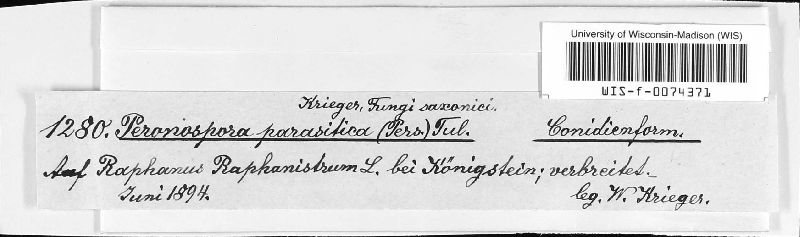 University of Wisconsin-Madison (WIS)
WIS-f-0074371
Krieger, Fungi saxonici.
1280. Peronospora parasitica (Pers.) Tul. Conidienform.
Auf Raphanus Raphanistrum L. bei Königstein; verbreitet.
Juni 1894. leg. W. Krieger.